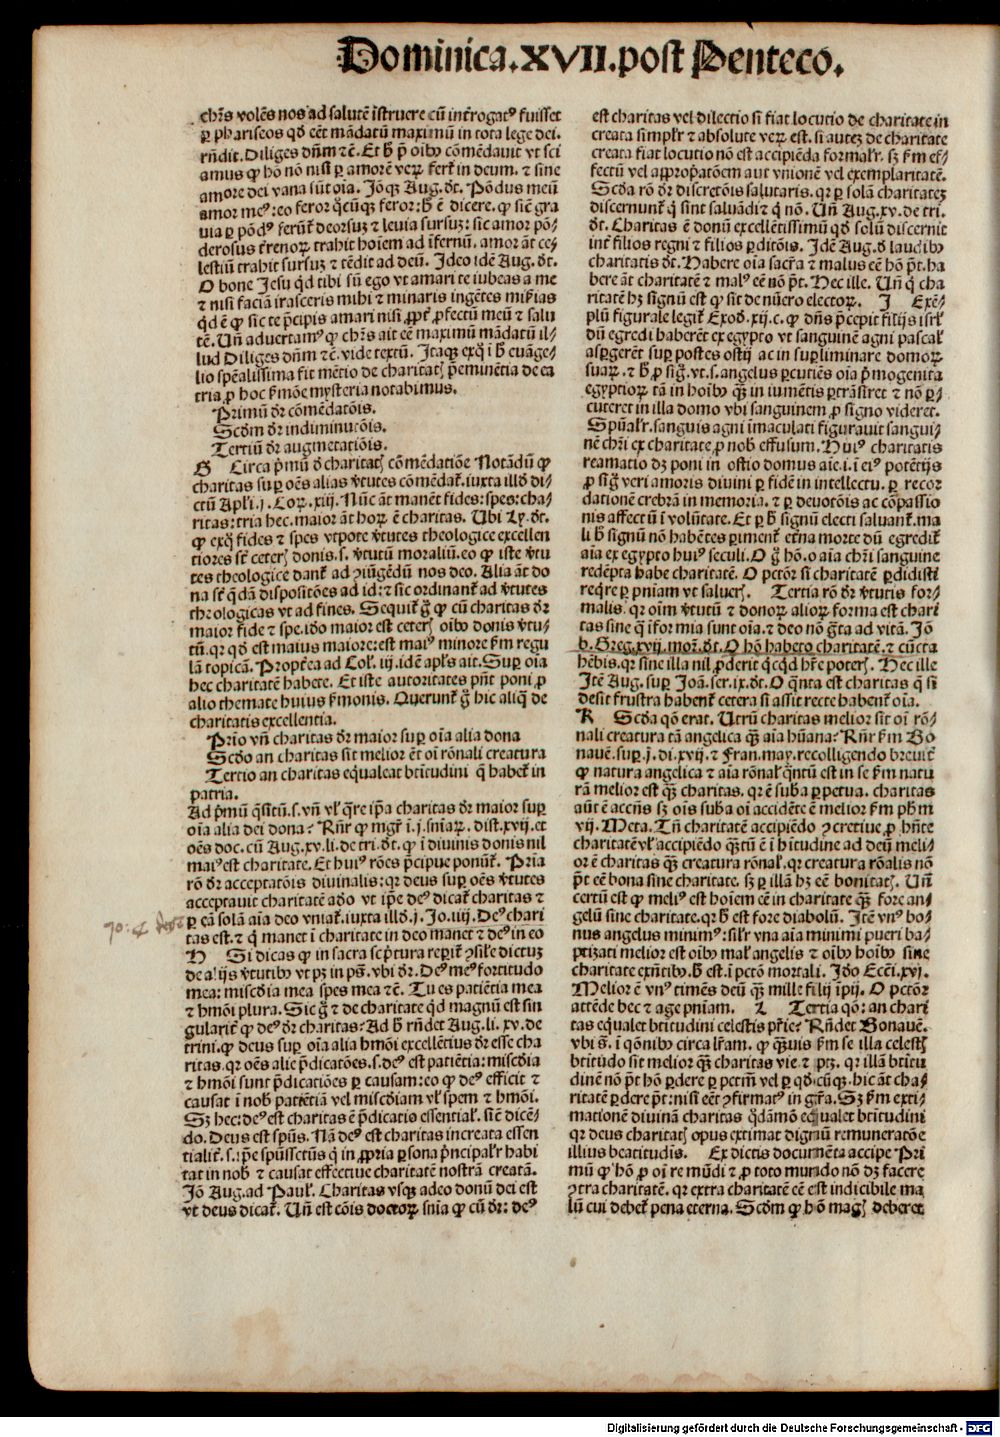 Dominica.XVII.post Penteco.
chr̄s volēs nos ad salutē īstruere cū int̄rogatꝰ fuisset
ꝑ phariseos qď eēt mādatū maximū in tota lege dei.
rn̄dit. Diliges dn̄m ⁊ē. Et ħ p̄ oībꝰ cōmēdauit vt sci
amus ꝙ hō nō nisi ꝑ amorē veꝝ fert̄ in deum. ⁊ sine
amore dei vana sūt oīa. Iōqꝫ Aug. dt. Pōdus meū
amor meꝰ: eo feror q̄cūqꝫ feror: ħ ē dicere. ꝙ siē gra
uia ꝑ pōdꝰ ferūt̄ deorsuꝫ ⁊ leuia sursuꝫ: sic amor pō/
derosus t̄renoꝝ trahit hoīem ad īfernū. amor āt ce/
lestiū trahit sursuꝫ ⁊ tēdit ad deū. Ideo idē Aug. dt.
O bone Iesu qd tibi sū ego vt amari te iubeas a me
⁊ nisi faciā irasceris mihi ⁊ minaris ingētes mīrias
qd ē ꝙ sic te p̄cipis amari nisi ꝓpt̄ ꝓfectū meū ⁊ salu
tē. Un̄ aduertamꝰ ꝙ chr̄s ait eē maximū mādatū il/
lud Diliges dn̄m ⁊ē. vide textū. Itaqꝫ exq̇ ī ħ euāge/
lio spēalissima fit mētio de charitatꝭ p̄eminētia de ea
tria ꝓ hoc ẜmōe mysteria notabimus.
Primū dr̄ cōmēdatōis.
Scd̄m dr̄ indiminutōis.
Tertiū dr̄ augmetatiōis.
G Circa p̄mū d̄ charitatꝭ cōmēdatiōe Notādū ꝙ
charitas suꝑ oēs alias v̄tutes cōmēdat̄. iuxta illď di/
ctū Apl̄i. j. Coꝝ. xiij. Nūc āt manēt fides: spes: cha/
ritas: tria hec. maior āt hoꝝ ē charitas. Ubi Ly. dt.
ꝙ exq̇ fides ⁊ spes vtpote v̄tutes theologice excellen
tiores sūt ceterꝭ donis. s. v̄tutū moraliū. eo ꝙ iste v̄tu
tes theologice dant̄ ad ꝯiūgēdū nos deo. Alia āt do
na sūt q̄dā dispositōes ad id: ⁊ sic ordinant̄ ad v̄tutes
theologicas vt ad fines. Sequit̄ g̊ ꝙ cū charitas dr̄
maior fide ⁊ spe. iďo maior est ceterꝭ oībꝰ donis v̄tu/
tū. qꝛ qď est maius maiore: est maiꝰ minore ẜm regu
lā topicā. Propt̄ea ad Col̄. iij. idē apl̄s ait. Suꝑ oīa
hec charitatē habete. Et iste autoritates pn̄t poni ꝓ
alio themate huius ẜmonis. Querunt̄ g̊ hic aliq̄ de
charitatis excellentia.
Prīo vn̄ charitas dr̄ maior suꝑ oīa alia dona
Scďo an charitas sit melior ē oī rōnali creatura
Tertio an charitas eq̄ualeat btītudini q̄ habet̄ in
patria.
Ad p̄mū q̄sitū. s. vn̄ vl̄ q̄re ip̄a charitas dr̄ maior suꝑ
oīa alia dei dona? Rn̄r ꝙ mgr̄ i. j. snīaꝝ. dist. xvij. et
oēs doc. cū Aug. xv. li. de tri. dt. ꝙ ī diuinis donis nil
maiꝰ est charitate. Et huiꝰ rōes p̄cipue ponūt̄. Prīa
rō dr̄ acceptatōis diuinalis: qꝛ deus suꝑ oēs v̄tutes
acceptauit charitatē aďo vt ip̄e deꝰ dicat̄ charitas ⁊
ꝑ eā solā aīa deo vniat̄. iuxta illď. j. Io. iiij. Deꝰ chari
tas est. ⁊ q̇ manet ī charitate in deo manet ⁊ deꝰ in eo
H Si dicas ꝙ in sacra sc̄ptura reperit̄ ꝯsil̄e dictuꝫ
de alijs v̄tutibꝰ vt pꝫ in psͣ. vbi dr̄. Deꝰ meꝰ fortitudo
mea: miscďia mea spes mea ⁊ē. Tu es patiētia mea
⁊ hmōi plura. Sic g̊ ⁊ de charitate qď magnū est sin
gularit̄ ꝙ deꝰ dr̄ charitas? Ad ħ rn̄det Aug. li. xv. de
trini. ꝙ deus suꝑ oīa alia hmōi excellētiꝰ dr̄ esse cha
ritas. qꝛ oēs alie p̄dicatōes. s. deꝰ est patiētia: miscďia
⁊ hmōi sunt p̄dicatiōes ꝑ causam: eo ꝙ deꝰ efficit ⁊
causat ī nobꝭ patiētiā vel miscďiam vl̄ spem ⁊ hmōi.
Sꝫ hec: deꝰ est charitas ē p̄dicatio essential̄. siē dicē/
do. Deus est spūs. Nā deꝰ est charitas increata essen
tialit̄. s. ip̄e spūssctūs q̇ in ꝓpria ꝑsona p̄ncipal̄r habi
tat in nobꝭ ⁊ causat effectiue charitatē nostrā creatā.
Iō Aug. ad Paul̄. Charitas vsqꝫ adeo donū dei est
vt deus dicat̄. Un̄ est cōis doctoꝝ snīa ꝙ cū dr̄: deꝰ
est charitas vel dilectio si fiat locutio de charitate in
creata simpl̄r ⁊ absolute veꝝ est. si auteꝫ de charitate
creata fiat locutio nō est accipiēda formal̄r. sꝫ ẜm ef/
fectū vel appropͣatōem aut vnionē vel exemplaritatē.
Scďa rō dr̄ discretōis salutaris. qꝛ ꝑ solā charitateꝫ
discernunt̄ q̇ sint saluādi ⁊ q̇ nō. Un̄ Aug. xv. de tri.
dt. Charitas ē donū excellētissimū qď solū discernit
int̄ filios regni ⁊ filios ꝑditōis. Idē Aug. d̄ laudibꝰ
charitatis dt. Habere oīa sacr̄a ⁊ malus eē hō pōt. ha
bere āt charitatē ⁊ malꝰ eē nō pōt. Hec ille. Un̄ q̇ cha
ritatē hꝫ signū est ꝙ sit de nūero electoꝝ. I Exē/
plū figurale legit̄ Exoď. xij. c. ꝙ dn̄s p̄cepit filijs isrl̄
dū egredi haberēt ex egypto vt sanguinē agni pascal̄
asꝑgerēt suꝑ postes ostij ac in suꝑliminare domoꝝ
suaꝝ. ⁊ ħ ꝓ sig̊. vt. s. angelus ꝑcutiēs oīa p̄mogenita
egyptioꝝ tā in hoībꝰ qͣꝫ in iumētis ꝑtrāsiret ⁊ nō ꝑ/
cuteret in illa domo vbi sanguinem ꝓ signo videret.
Spūal̄r. sanguis agni īmaculati figurauit sangui/
nē chr̄i ex charitate ꝓ nobꝭ effusum. Huiꝰ charitatis
reamatio dꝫ poni in ostio domus aīe. i. ī eiꝰ potētijs
ꝓ sig̊ veri amoris diuini ꝑ fidē in intellectu. ꝑ recor
dationē crebrā in memoria. ⁊ ꝑ deuotōis ac cōpassio
nis affectū ī volūtate. Et ꝑ ħ signū electi saluant̄. ma
li ħ signū nō habētes ꝑiment̄ et̄na morte dū egredit̄
aīa ex egypto huiꝰ seculi. O g̊ hō. o aīa chr̄i sanguine
redēpta habe charitatē. O pctōr si charitatē ꝑdidisti
reqͥre ꝑ pn̄iam vt saluerꝭ. Tertia rō dr̄ v̄tutis for/
malis. qꝛ oīm v̄tutū ⁊ donoꝝ alioꝝ forma est chari
tas sine q̄ īformia sunt oīa. ⁊ deo nō g̊ta ad vitā. Iō
b. Greg. xvij. moꝝ. dt. O hō habeto charitatē. ⁊ cūcta
hēbis. qꝛ sine illa nil ꝓderit qͥcqď hr̄e poterꝭ. Hec ille
Itē Aug. suꝑ Ioā. ser. ix. dt. O q̄nta est charitas q̄ si
desit frustra habent̄ cetera si assit recte habent̄ oīa.
K Scďa qō erat. Utrū charitas melior sit oī rō/
nali creatura tā angelica qͣꝫ aīa hūana? Rn̄r ẜm Bo
nauē. suꝑ. j. di. xvij. ⁊ Fran. may. recolligendo breuit̄
ꝙ natura angelica ⁊ aīa rōnal̄ qͣntū est in se ẜm natu
rā melior est qͣꝫ charitas. qꝛ ē suba ꝑpetua. charitas
aūt ē accn̄s sꝫ oīs suba oī accidēte ē melior ẜm phm̄
vij. Meta. Tn̄ charitatē accipiēdo ꝯcretiue ꝓ hn̄te
charitatē vl̄ accipiēdo qͣꝫtū ē ī hītudine ad deū meli/
or ē charitas qͣꝫ creatura rōnal̄. qꝛ creatura rōalis nō
pōt eē bona sine charitate. sꝫ ꝑ illā hꝫ eē bonitatꝭ. Un̄
certū est ꝙ meliꝰ est hoiem eē in charitate qͣꝫ fore an/
gelū sine charitate. qꝛ ħ est fore diabolū. Itē vnꝰ bo/
nus angelus minimꝰ: sil̄r vna aīa minimi pueri ba/
ptizati melior est oībꝰ mal̄ angelis ⁊ oībꝰ hoībꝰ sine
charitate exn̄tibꝰ. ħ est. ī pctō mortali. Iďo Ecci. xvj.
Melior ē vnꝰ timēs deū qͣꝫ mille filij īpij. O pctōr
attēde hec ⁊ age pn̄iam. L Tertia qō: an chari
tas equalet btītudini celestis pr̄ie? Rn̄det Bonauē.
vbi s̄. ī qōnibꝰ circa lr̄am. ꝙ qͣꝫuis ẜm se illa celestꝭ
btītudo sit melior qͣꝫ charitas vie. ⁊ ptꝫ. qꝛ illā btītu
dinē nō pōt hō ꝑdere ꝑ pctm̄ vel ꝑ qď cūqꝫ. hic āt cha/
ritatē ꝑdere pōt: nisi eēt ꝯfirmatꝰ in gr̄a. Sꝫ ẜm exti/
mationē diuinā charitas q̄dāmō equalet btītudini
qꝛ deus charitatꝭ opus extimat dignū remuneratōe
illius beatitudis. Ex dictis documēta accipe Pri
mū ꝙ hō ꝓ oī re mūdi ⁊ ꝓ toto mundo nō dꝫ facere
ꝯtra charitatē. qꝛ extra charitatē eē est indicibile ma
lū cui debet̄ pena eterna. Scďm ꝙ hō magꝭ deberet
Digitalisierung gefördert durch die Deutsche Forschungsgemeinschaft - DFG